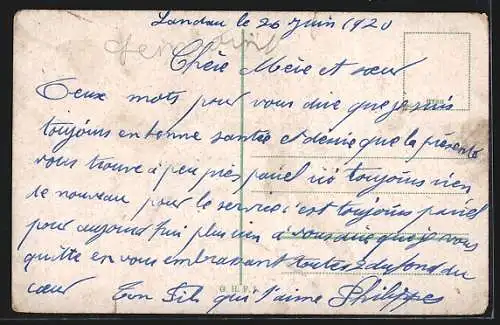 Landau le 26 Juin 1920
Chère Mère et sœur
Deux mots pour vous dire que je suis
toujours en bonne santée et désire que la présente
vous trouve a peu près pareil ici toujours rien
de nouveau pour le service c'est toujours pareil
pour aujourd'hui plus rien a vous dire que je vous
quitte en vous embrassant toutes 2 du fond du
cœur Ton fils qui t'aime Philippe
G. H. F.